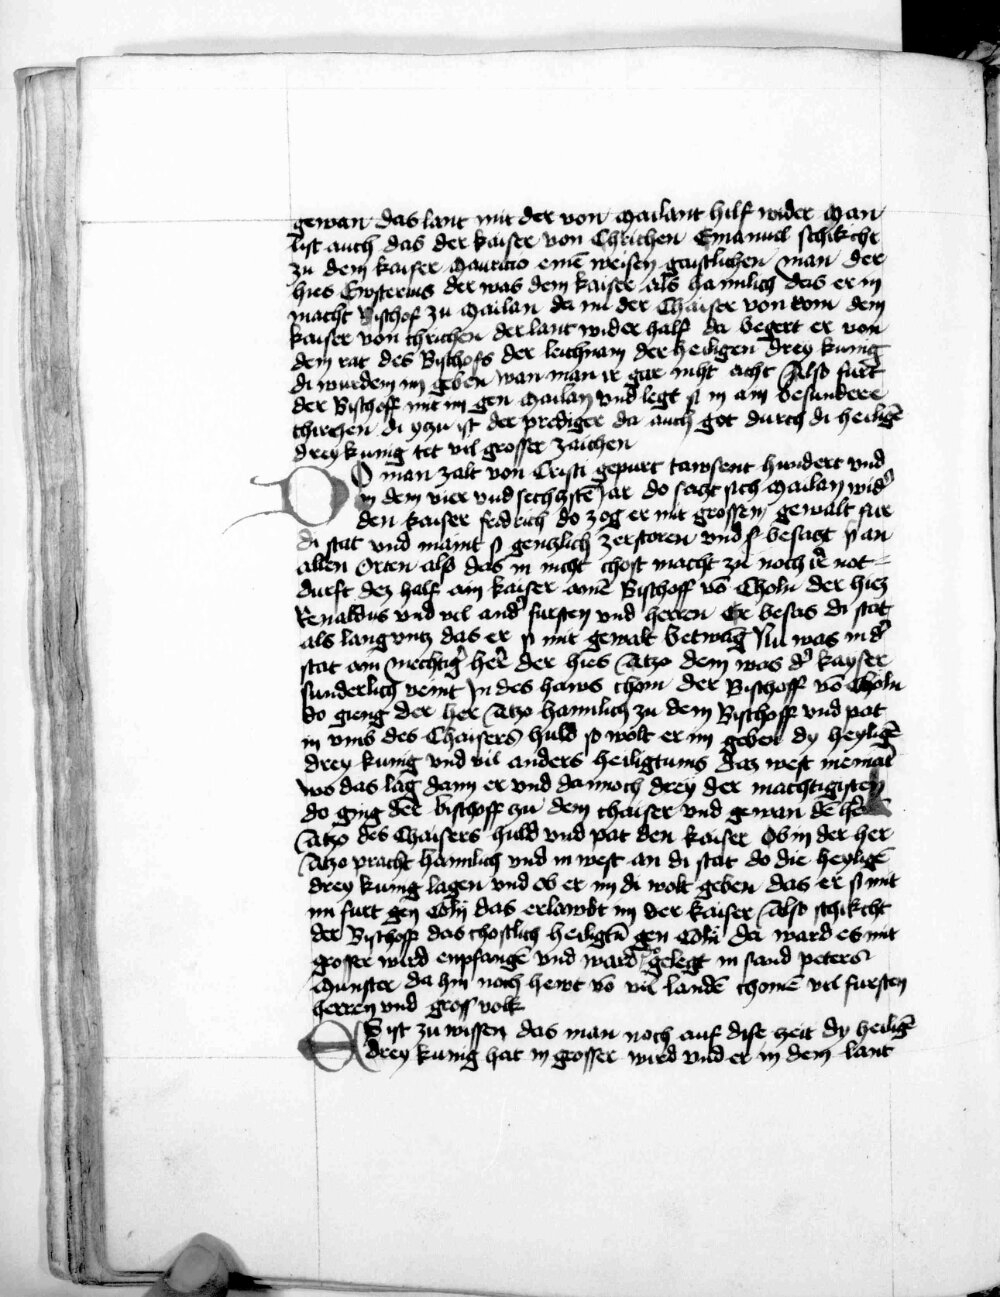 gewan das lant mit der von Mailant hilf wider Man
list auch das der kaiser von Chrichen Emanuel schikcht
zu dem kaiser Mauricio einē weisen gaistlichen man der
hies Ewsterius der was dem kaiser als haimlich das er in
macht Bischof zu Mailan da nu der Chaiser von rom dem
kaiser von chrichen der lant wider half da begert er von
dem rat des Bischofs der leichnam der heiligen drey kunig
di wurdem im geben wan man ir gar niht acht Also furt
der Bischoff mit im gen Mailan vnd legt si in ain besundere
chirchen di yczu ist der prediger da auch got durch di heiligē
drey kunig tet vil grosser zaichen
Do man zalt von Cristi gepurt tawsent hundert vnd
in dem vier vnd sechczstē Jar do saczt sich Mailan wid'
den kaiser fridrich do zog er mit grossem gewalt fur
di stat vnd maint si genczlich zerstoren vnd besaczt sy an
allen Orten also das in nicht chost macht zu noch ir not
durft dez half ain kaiser ainē Bischoff vō Choln der hiez
Renaldus vnd vil and' fursten vnd herren Er besas di stat
als lang vntz das er si mit gewalt betwag Nu was in d'
stat ain mechtig' her der hies Atzo dem was d' kayser
sunderlich veint In des haws chom der Bischoff vō Choln
do gieng der her Atzo haimlich zu dem Bischoff vnd pat
in vmb des Chaisers huld so wolt er im geben dy heyligē
drey kunig vnd vil anders heiligtums daz west niemāt
wo das lag dann er vnd dannoch drey der mächtigisten
do ging der bischoff zu dem chaiser vnd gewan dē hern
Atzo des Chaisers huld vnd pat den kaiser Ob in der her
Atzo pracht haimlich vnd in west an di stat do die heyligē
drey kunig lagen vnd ob er im di wolt geben das er si mit
im furt gen Cöln das erlawbt im der kaiser Also schikcht
der Bischoff das chostlich heiligtū gen Cöln da ward es mit
grosser wird enpfangē vnd ward gelegt in sand peters
Munster da hin noch hewt vō vil landē chomē vil fursten
herren vnd gross volk
Es ist zu wissen das man noch auf dise zeit dy heiligē
drey kunig hat in grosser wird vnd er in dem lant